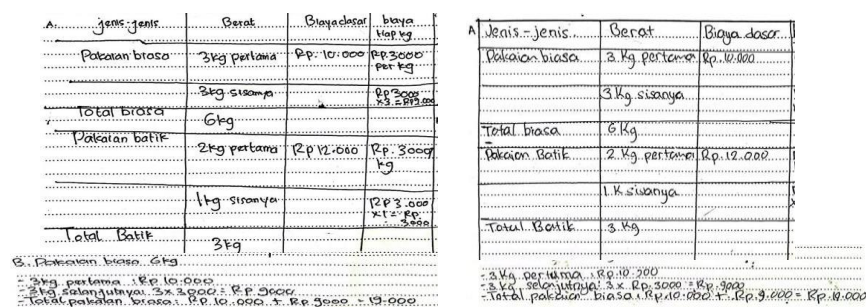 A. jenis-jenis Berat Biaya dasar biaya tiap kg
Pakaian biasa 3kg pertama Rp. 10.000 Rp.3000 per kg
3kg sisanya Rp3000 x3 = Rp9.000
Total biasa 6kg
Pakaian batik 2kg pertama Rp 12.000 Rp. 3000/ kg
1kg sisanya Rp3.000 x1 = Rp. 3.000
Total Batik 3kg
B. Pakaian biasa 6kg
- 3kg pertama : Rp 10.000
- 3kg selanjutnya: 3x3.000 = Rp 9000
- Total pakaian biasa: Rp 10.000 + Rp 9000 = 19.000
A Jenis-jenis Berat Biaya dasar
Pakaian biasa 3 Kg pertama Rp. 10.000
3 Kg sisanya
Total biasa 6 Kg
Pakaian Batik 2 Kg pertama Rp. 12.000
1 K sisanya
Total Batik 3 Kg
- 3 Kg pertama : Rp.10.000
- 3 Kg selanjutnya : 3 x Rp. 3000 = Rp. 9000
- Total pakaian biasa : Rp. 10.000 + Rp. 9.000 = Rp. 19.000